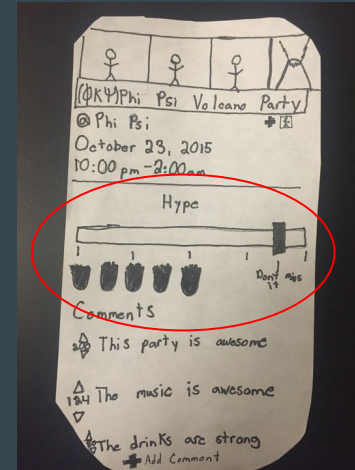 (ΦΚΨ)Phi Psi Volcano Party
@ Phi Psi
October 23, 2015
10:00 pm - 2:00 am
Hype
Don't miss
it
Comments
This party is awesome
124 The music is awesome
The drinks are strong
Add Comment